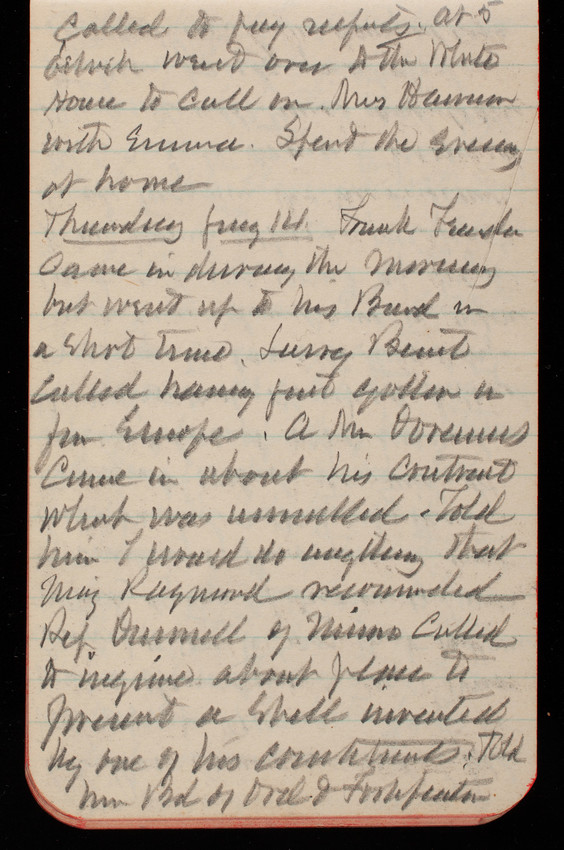 Called to pay respects. At 5
oclock went over to the White
House to call on Mrs Harrison
with Emma. Spend the Evening
at home
Thursday 14 Frank
Came in during the Morning
but went up to his Board in
a Short time. Leroy
Called having just gotten in
from Europe. A Mr Doremus
Came in about his Contract
What was annulled. Told
him I would do anything that
Maj Raymond recommended
Rep of Called
to inquire about place to
present a Shell invented
by one of his constituents. Told
him Bd of Ord & Fortification